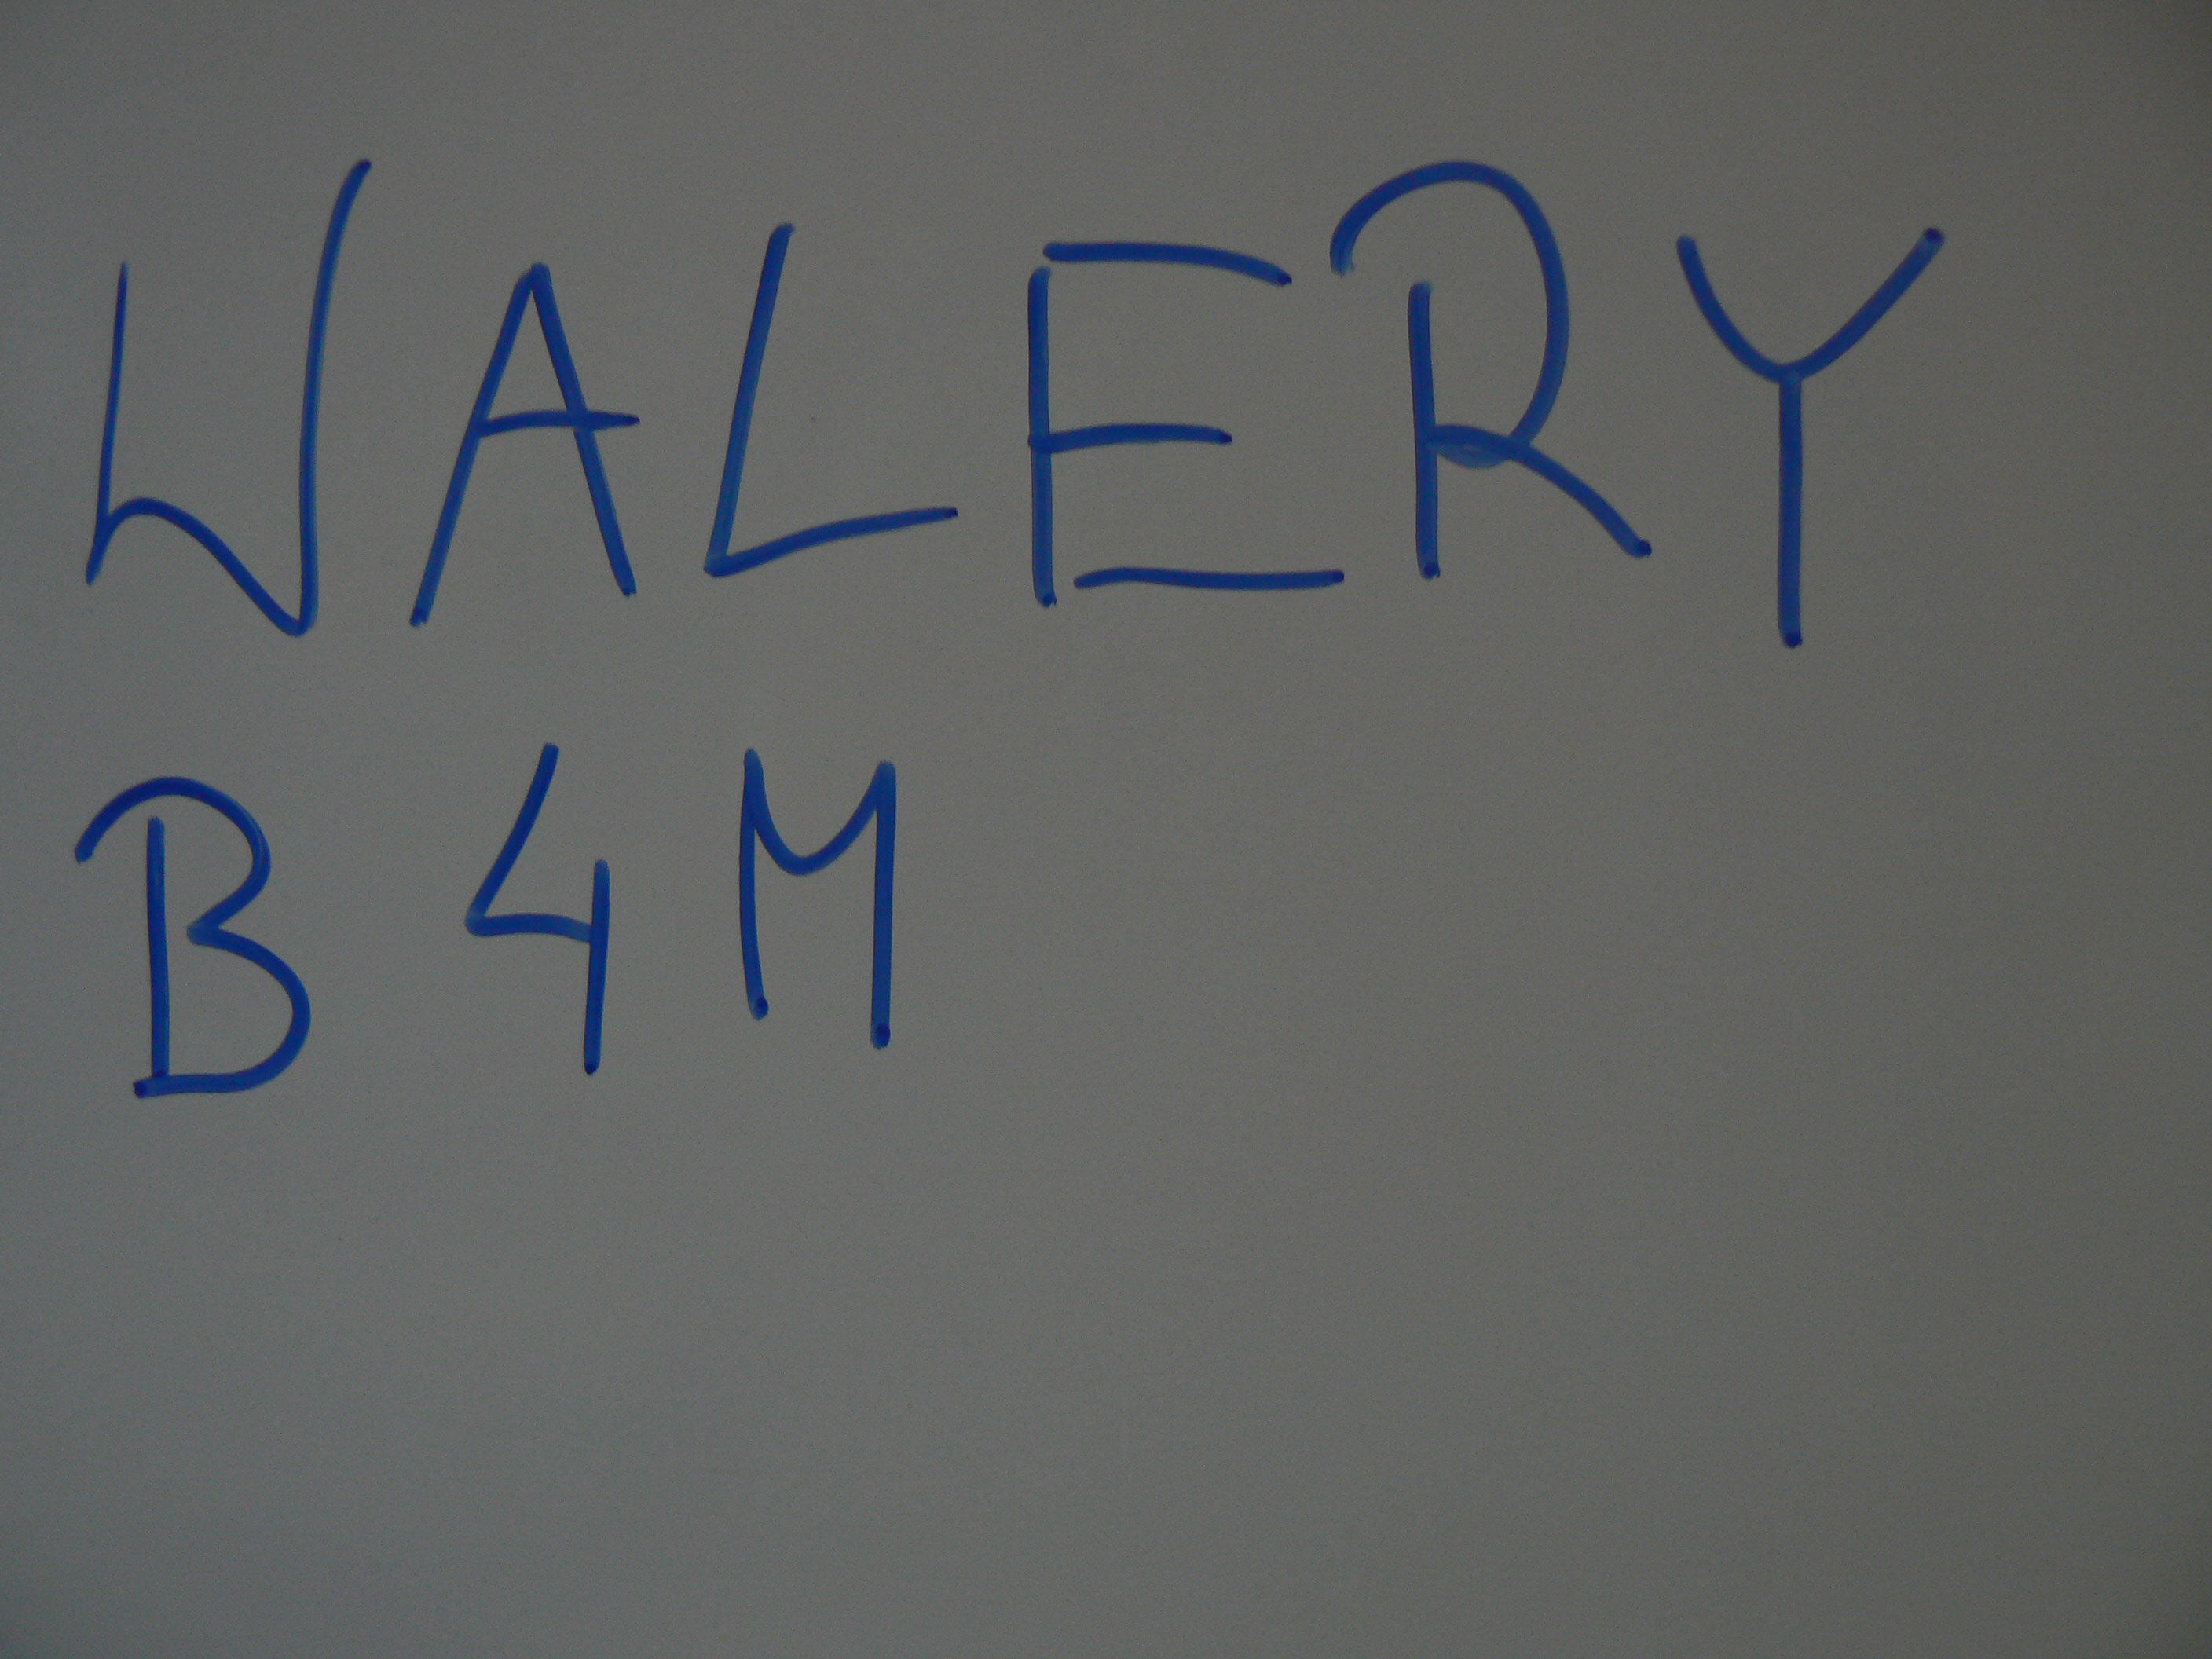 WALERY
B4M